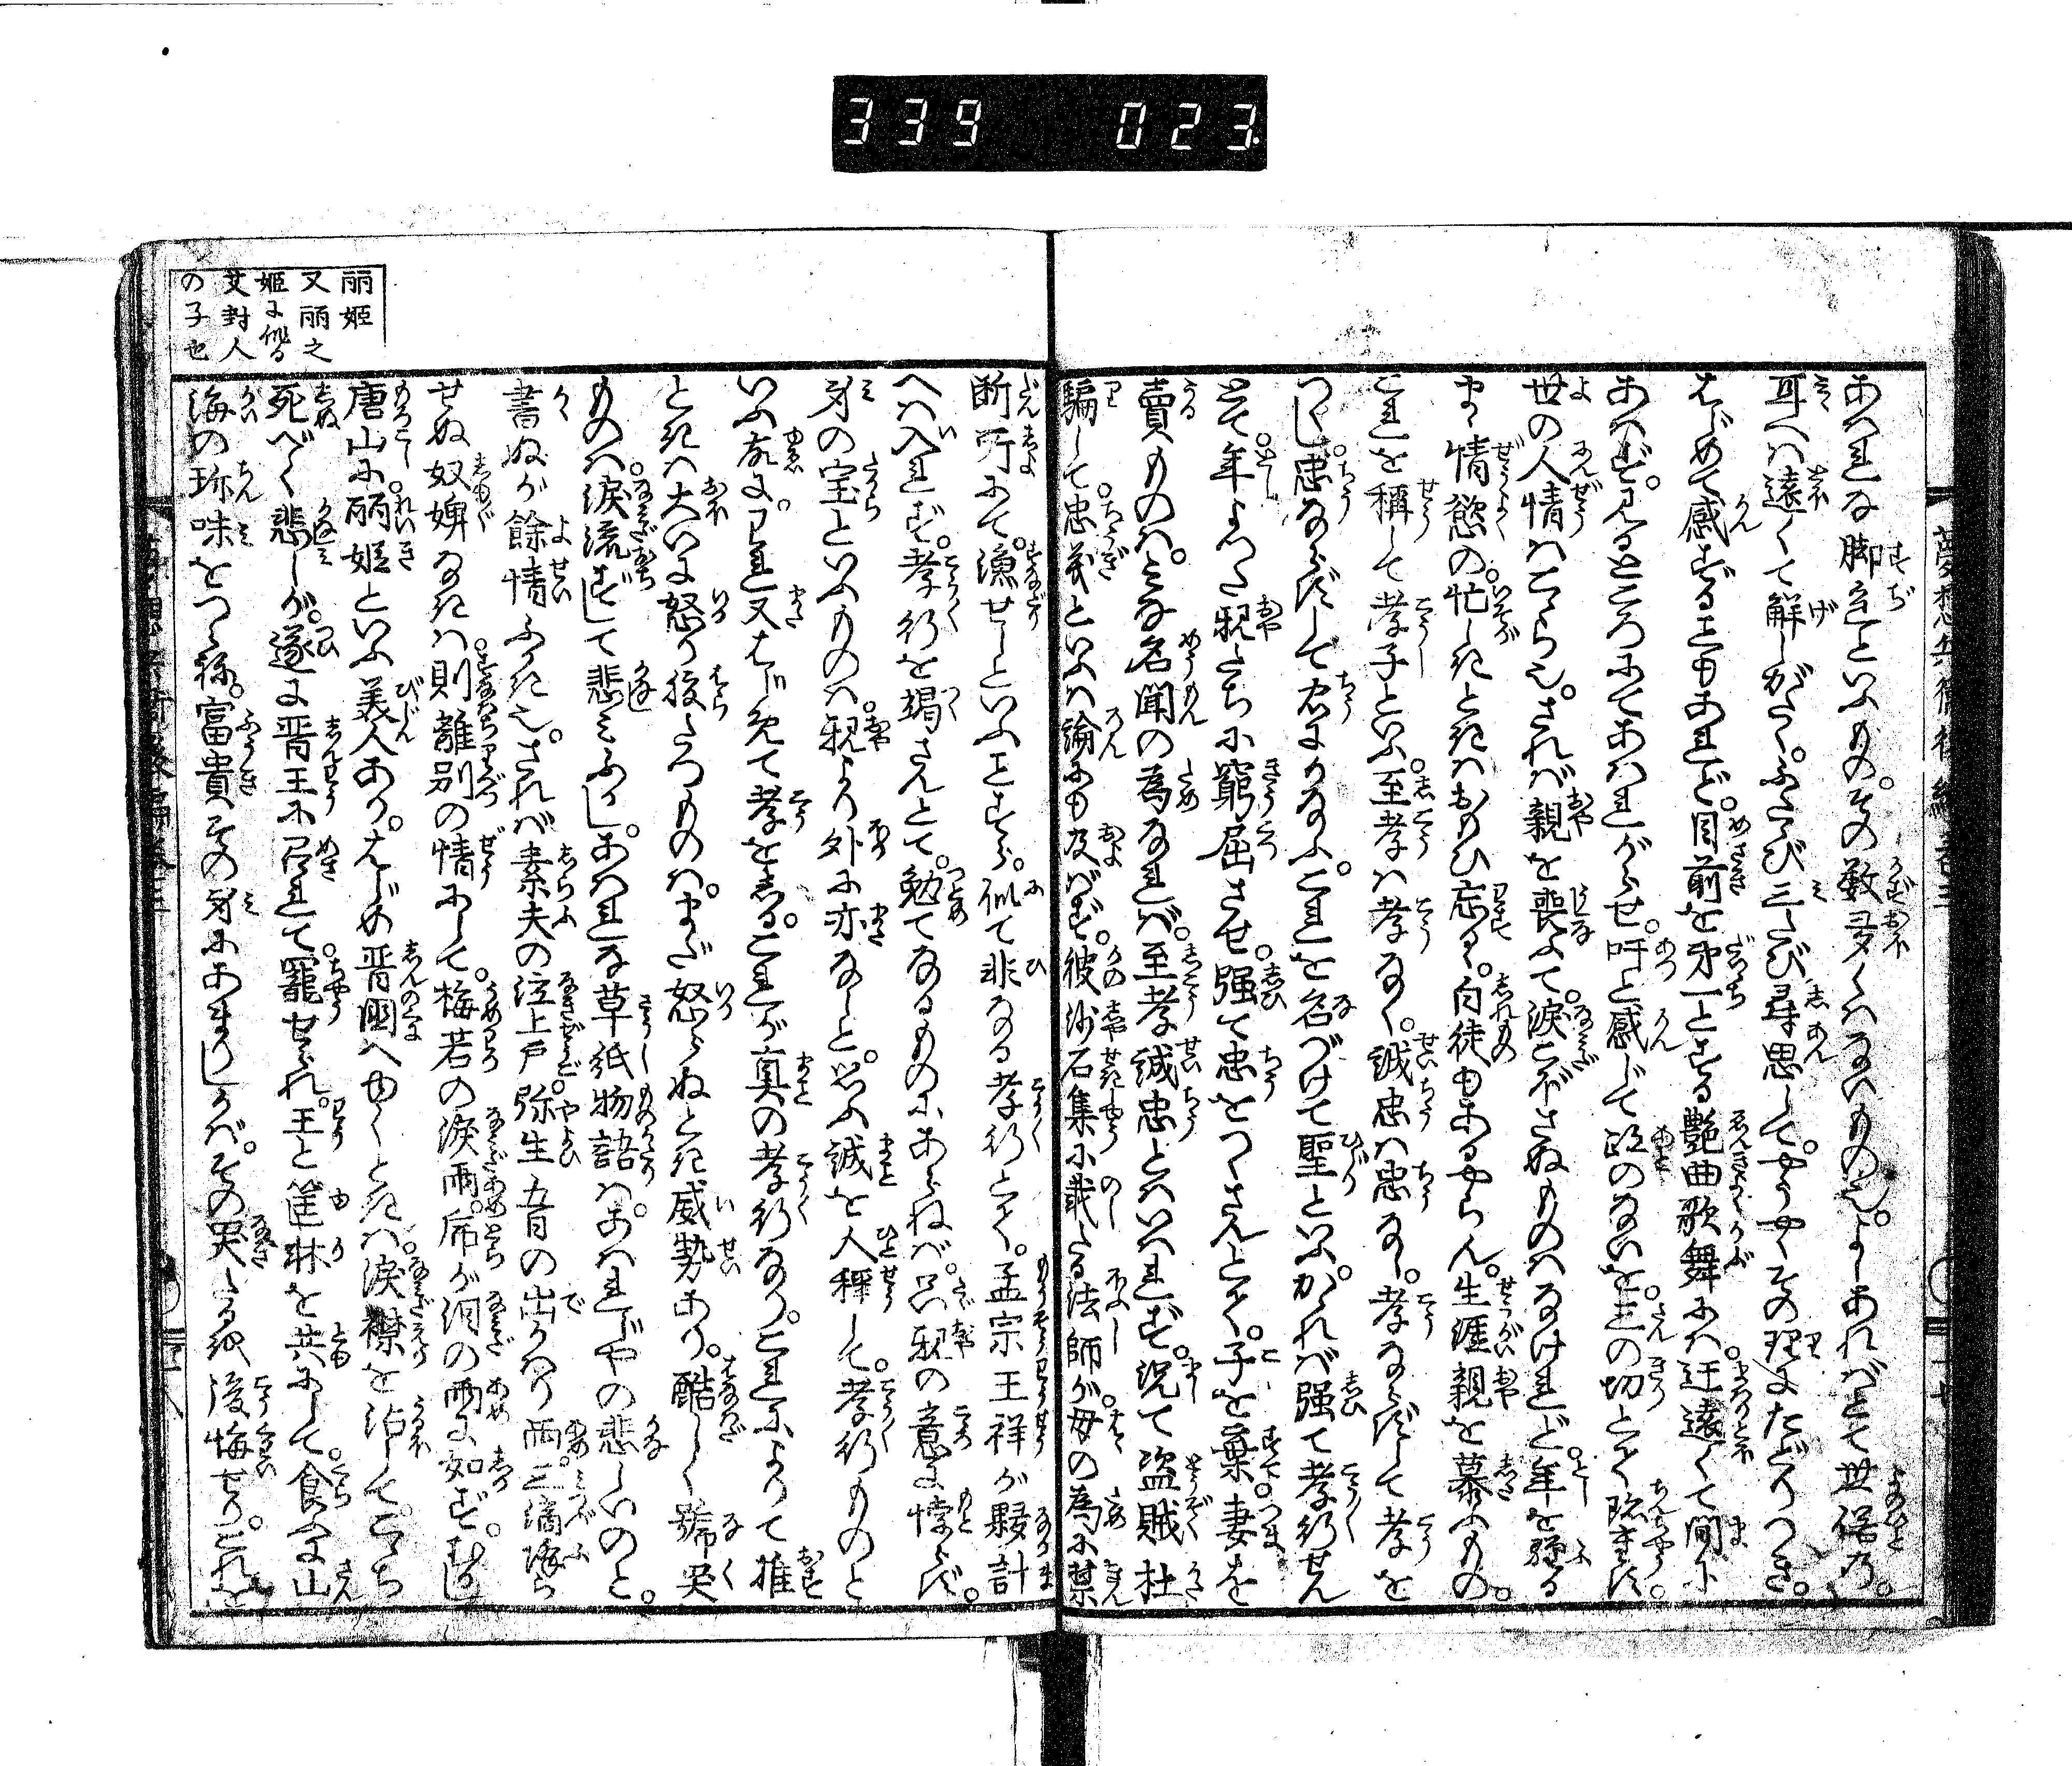 339 023
あはれな脚色といふもの。その数多くはないもの也。よしあればとて世俗の。
耳へは遠くて解しがたく。ふたゝび三たび尋思して。やうやくその理にたどりつき。
はじめて感ずることもあれど。目前を第一とする艶曲歌舞には。迂遠くて間に
あはず。見るところにてあはれがらせ。吁と感じて跡のないを。三の切とく
世の人情はこゝら也。されば親を喪ふて。涙こぼさぬものはなけれど。年を経る
まゝ情慾の。忙しきときはおもひ忘るゝ。白徒もあるやらん。生涯親を慕ふもの。
これを稱して孝子といふ。至孝は孝なく。誠忠は忠なし。孝ならずして孝を
つくし。忠ならずして忠になふ。これを名づけて聖といふ。かゝれば强て孝行せん
とて。年よつた親たちに窮屈させ。强て忠をつくさんとて。子を棄。妻を
賣ものは。みな名聞の為なれば。至孝誠忠とはいはれず。况て盗賊杜
騙して忠義といふは論にも及ばず。彼沙石集に載たる法師が。母の為に禁
断所にて。漁せしといふことすら。似て非なる孝行とく。孟宗王祥が夥計
へは入れず。孝行を竭さんとて。勉てなるものにあらねば。只親の意に悖らず。
身の宝といふものは。親より外に亦なしと。思ふ誠を人稱して。孝行ものと
いふ故に。これ又はじめて孝をしる。これが真の孝行なり。これによりて推
ときは大いに怒り腹たつものは。まだ怒らぬとき威勢あり。酷しく號哭
ものは。涙流ずして悲みふかし。あはれな草紙物語は。あはれじやの悲しいのと。
書ぬが餘情ふかき也。されば素夫の泣上戸。弥生五月の出かはり雨。三滴落ら
せぬ奴婢なきは。則離別の情にして。梅若の涙雨。虎が涙の雨に如ず。むかし
唐山に丽姫といふ美人あり。はじめ晋國へゆくときは。涙襟を沾して。こゝち
死べく悲しが。遂に晋王に召れて。寵せられ。王と筐牀を共にして。食ふに山
海の珎味をつくし。富貴その身にあまりしかば。その哭たるを後悔せり。これを
丽姫
又丽之
姫に作る
艾封人
の子也